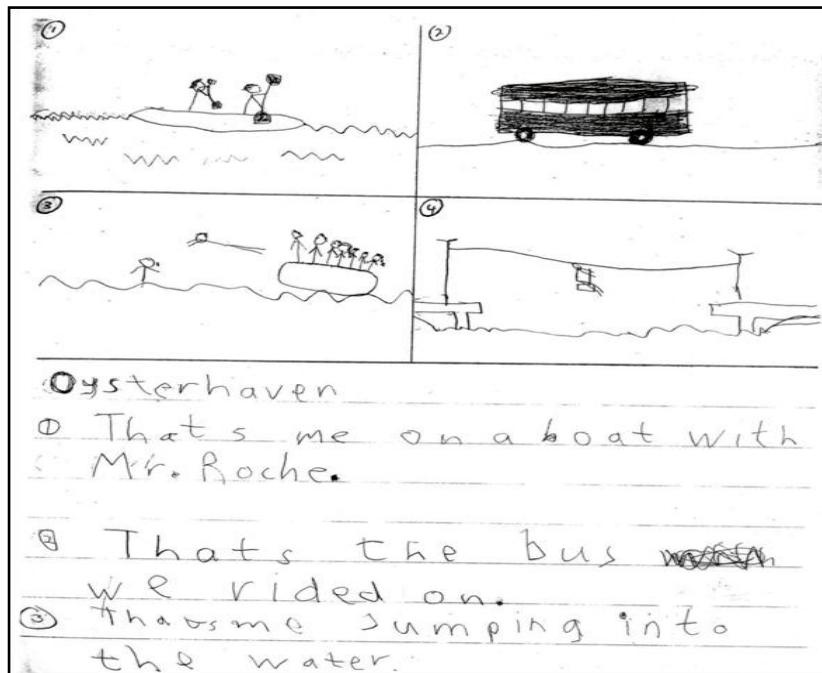 ① ②
③ ④
Oysterhaven
① Thats me on a boat with
Mr. Roche.
② Thats the bus
we rided on.
③ thats me Jumping into
the water.